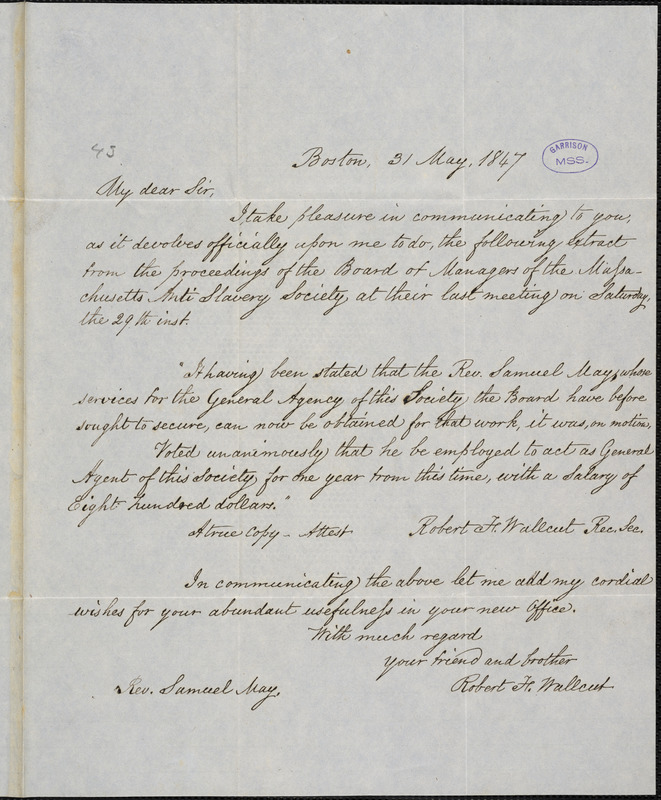 43
Boston, 31 May, 1847
GARRISON
MSS.
My dear Sir,
I take pleasure in communicating to you,
as it devolves officially upon me to do, the following extract
from the proceedings of the Board of Managers of the Massa-
chusetts Anti Slavery Society, at their last meeting on Saturday,
the 29th inst.
"It having been stated that the Rev. Samuel May, whose
services for the General Agency of this Society the Board have before
sought to secure, can now be obtained for that work, it was, on motion,
Voted unanimously that he be employed to act as General
Agent of this Society for one year from this time, with a Salary of
Eight hundred dollars."
A true Copy - Attest
Robert F. Wallcut Rec. Sec.
In communicating the above let me add my cordial
wishes for your abundant usefulness in your new Office.
With much regard
your friend and brother
Rev. Samuel May.
Robert F. Wallcut